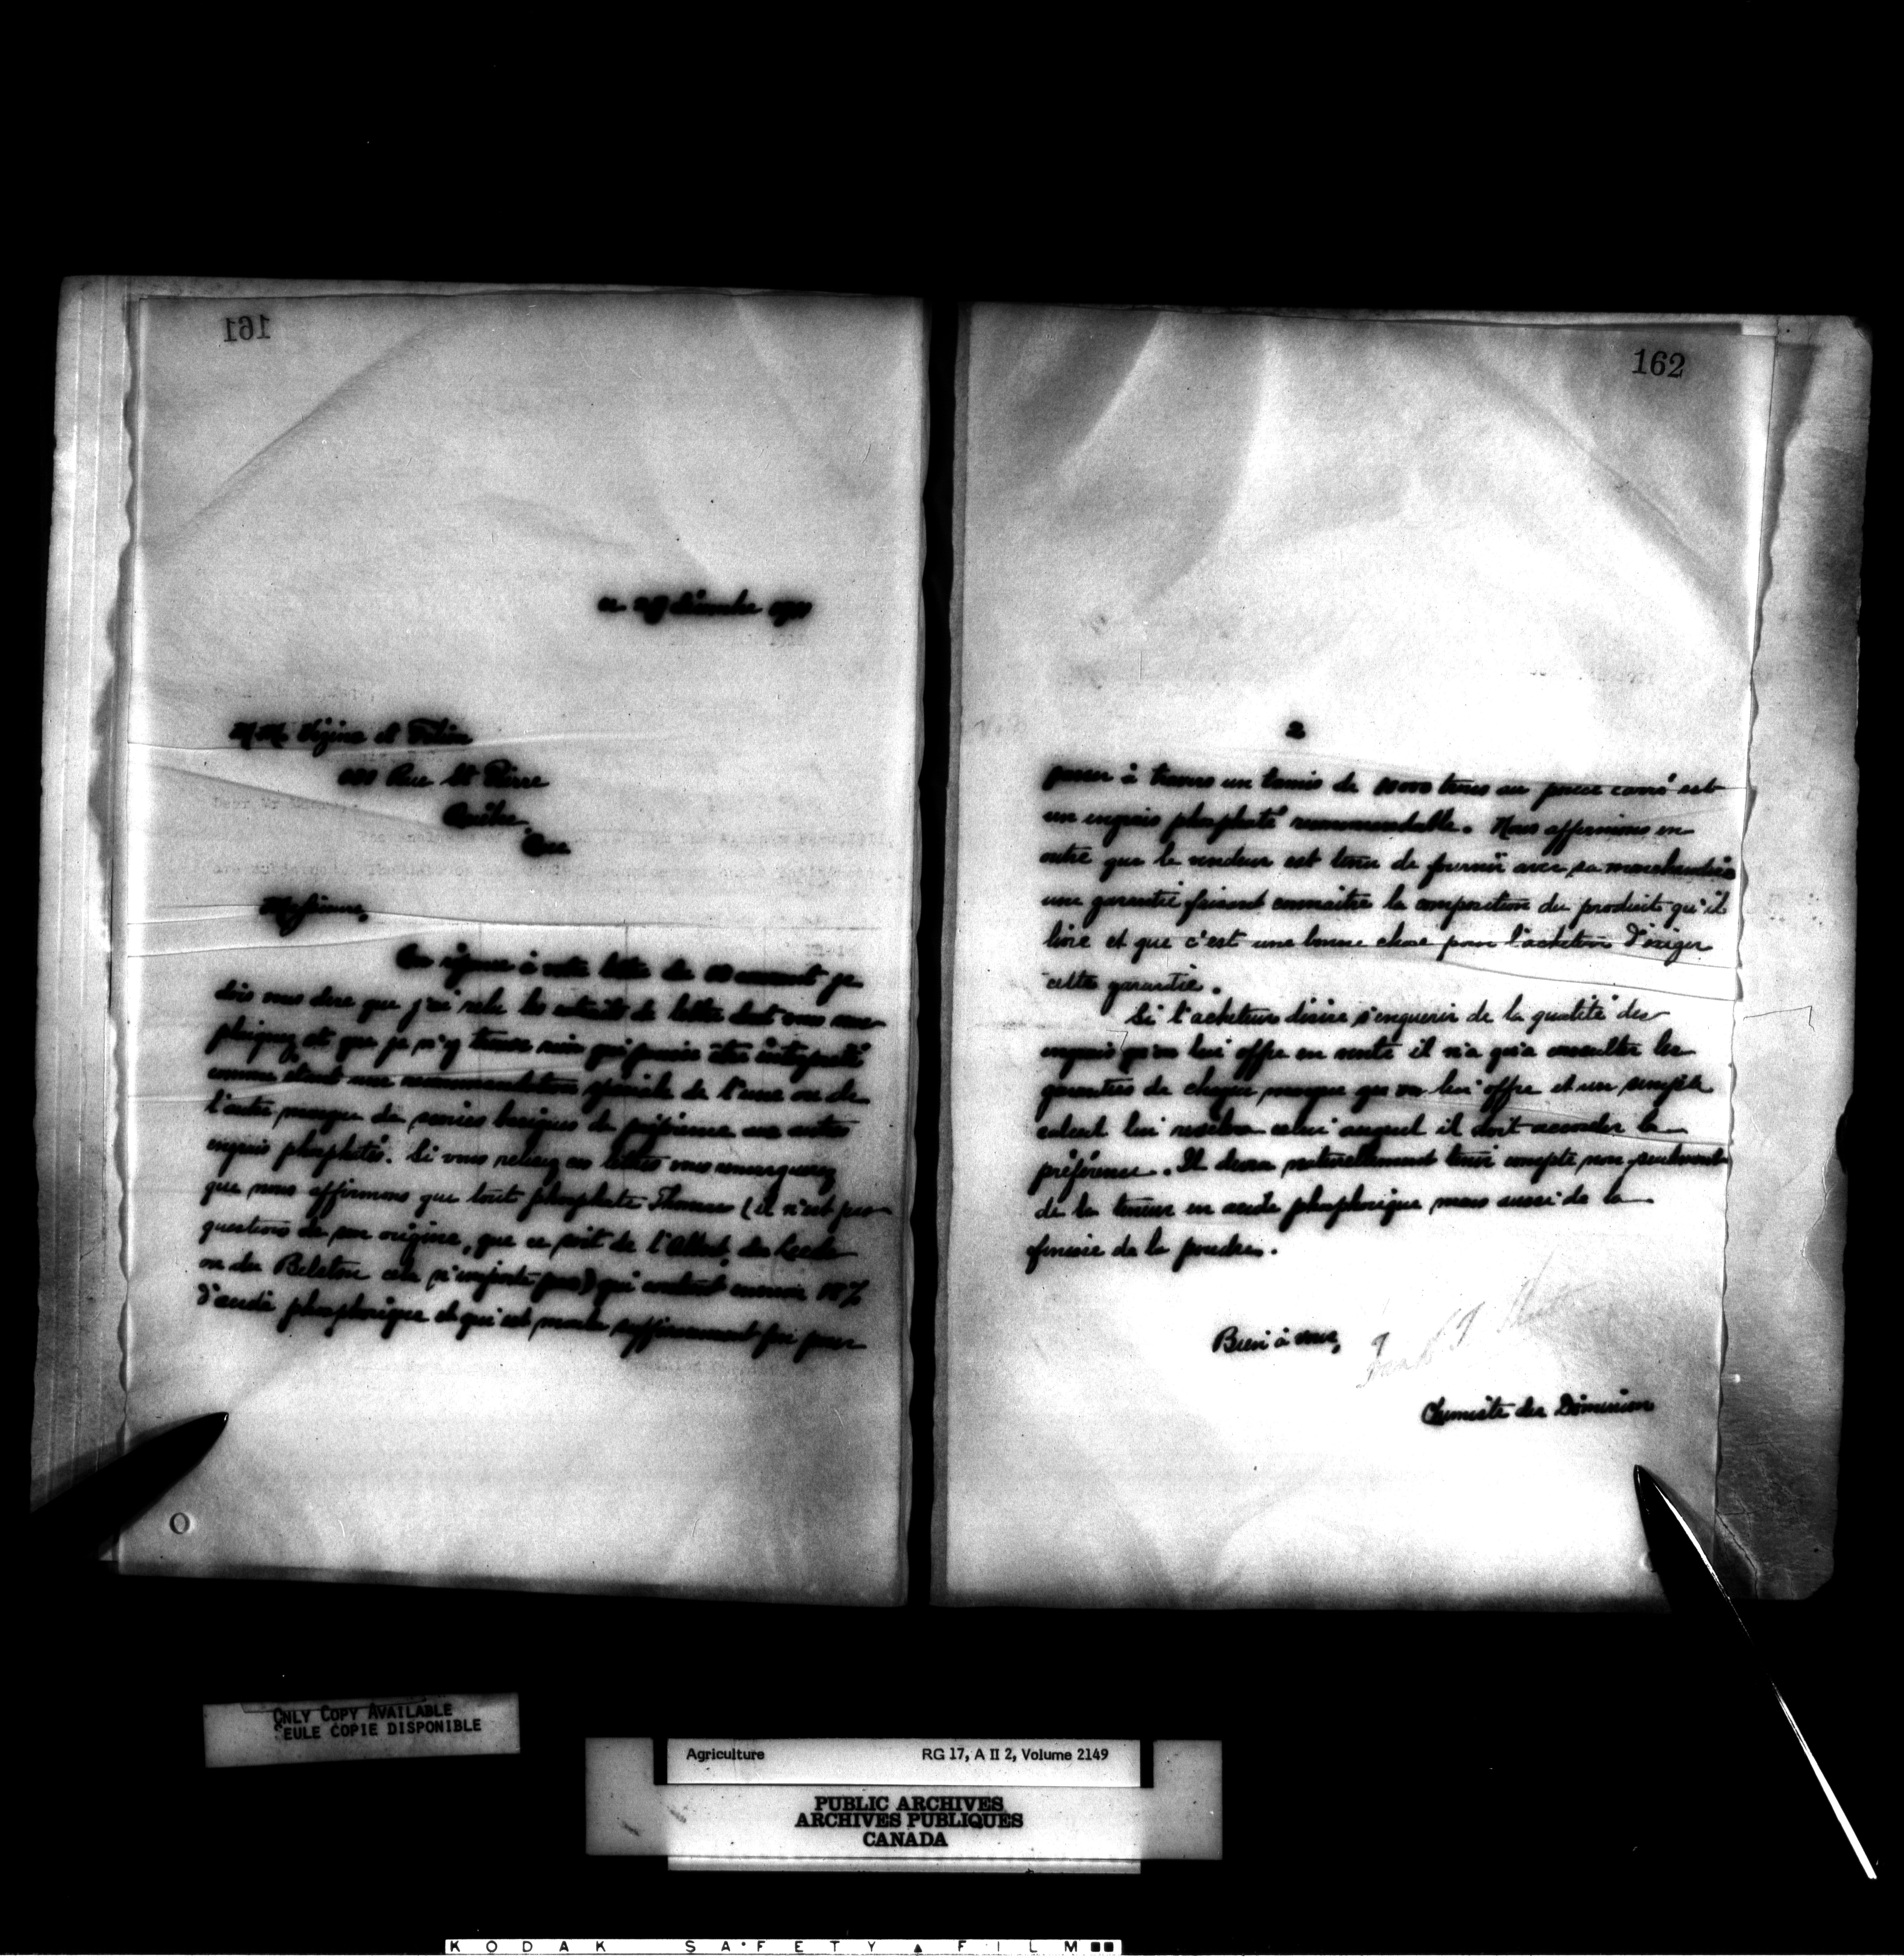 161
décembre
M.M. et
Rue St Pierre
Québec
Que
Messieurs,
En réponse à votre lettre du courant je
dois vous dire que j'ai relu les extraits de lettre dont vous me
et que je n'y trouve rien qui puisse être interprété
comme étant une recommandation spéciale de l'une ou de
l'autre marque de scories basiques de préférence aux autres
engrais phosphatés. Si vous relisez ces lettres vous remarquerez
que nous affirmons que tout phosphate Thomas (il n'est pas
questions de son origine, que ce soit de l'Albert, du Leeds
ou du Belston cela n'importe pas) qui contient environ %
d'acide phosphorique et qui est moulu suffisamment fin pour
162
2
passer à travers un tamis de 10000 trous au pouce carré est
un engrais phosphaté recommandable. Nous affirmions en
outre que le vendeur est tenu de fournir avec sa marchandise
une garantie faisant connaitre la composition du produit qu'il
livre et que c'est une bonne chose pour l'acheteur d'exiger
cette garantie.
Si l'acheteur désire s'enquerir de la qualité des
engrais qu'on lui offre en vente il n'a qu'a consulter les
garanties de chaque marque que on lui offre et un simple
calcul lui celui auquel il doit accorder la
préférence. Il devra naturellement tenir compte non seulement
de la teneur en acide phosphorique mais aussi de la
finesse de la poudre.
Bien à vous,
Frank T Shutt
Chimiste du Dominion
O
ONLY COPY AVAILABLE
SEULE COPIE DISPONIBLE
Agriculture RG 17, A II 2, Volume 2149
PUBLIC ARCHIVES
ARCHIVES PUBLIQUES
CANADA
KODAK SAFETY FILM